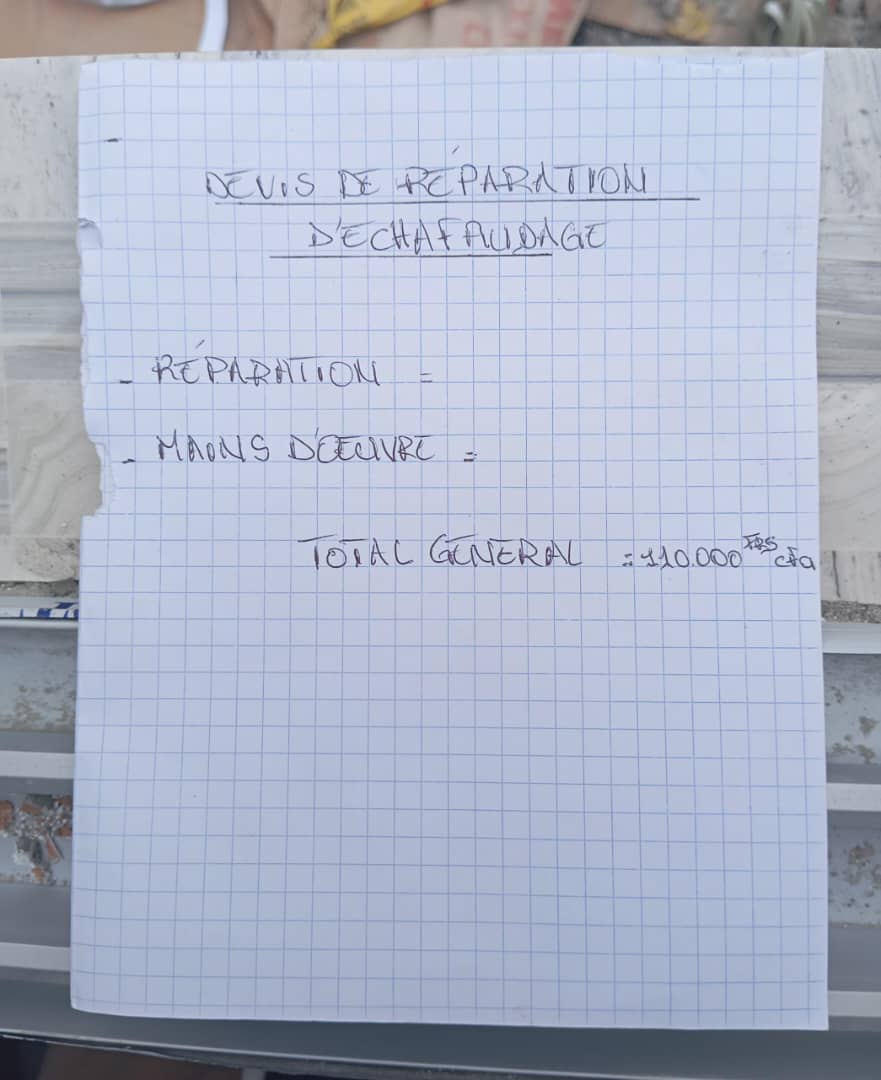 DEVIS DE RÉPARATION
D'ECHAFAUDAGE
- RÉPARATION =
- MAINS D'ŒUVRE =
TOTAL GENERAL = 110.000 FRS cfa